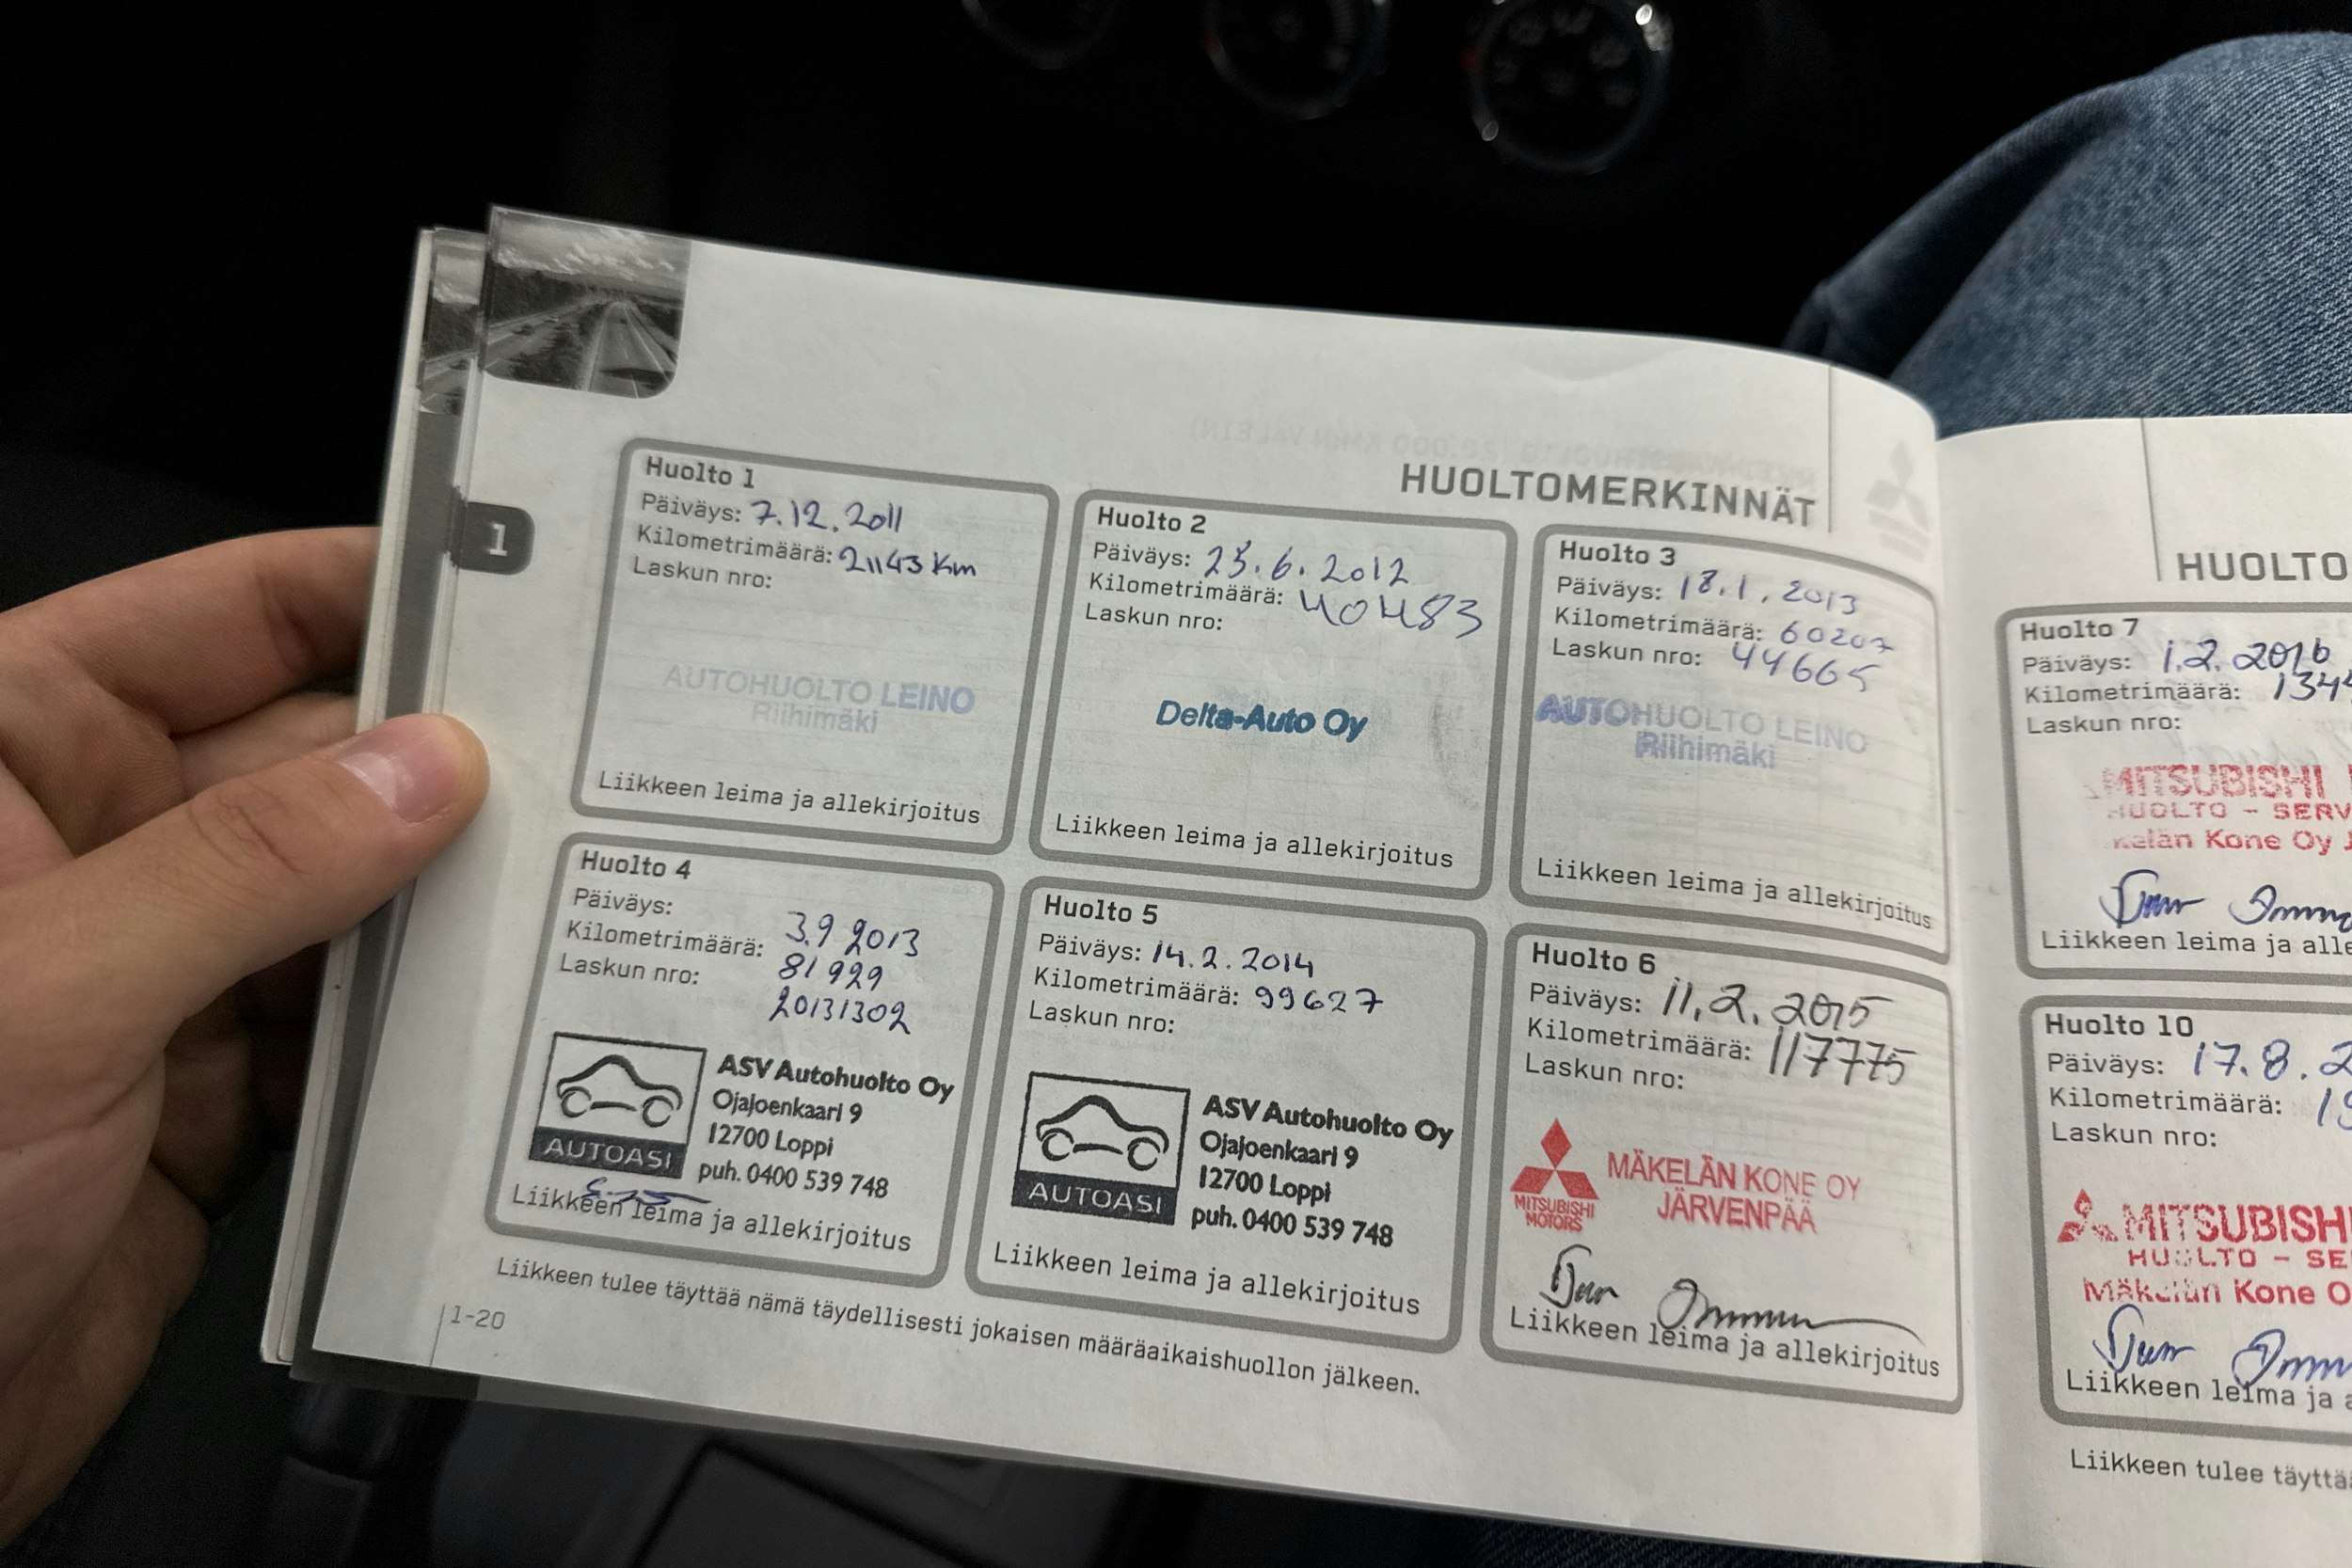 1
HUOLTOMERKINNÄT
Huolto 1
Päiväys: 7.12.2011
Kilometrimäärä: 21143 Km
Laskun nro:
AUTOHUOLTO LEINO
Riihimäki
Liikkeen leima ja allekirjoitus
Huolto 2
Päiväys: 25.6.2012
Kilometrimäärä: 40483
Laskun nro:
Delta-Auto Oy
Liikkeen leima ja allekirjoitus
Huolto 3
Päiväys: 18.1.2013
Kilometrimäärä: 60207
Laskun nro: 44665
AUTOHUOLTO LEINO
Riihimäki
Liikkeen leima ja allekirjoitus
Huolto 4
Päiväys: 3.9 2013
Kilometrimäärä: 81929
Laskun nro: 20131302
AUTOASI
ASV Autohuolto Oy
Ojajoenkaari 9
12700 Loppi
puh. 0400 539 748
Liikkeen leima ja allekirjoitus
Huolto 5
Päiväys: 14.2.2014
Kilometrimäärä: 99627
Laskun nro:
AUTOASI
ASV Autohuolto Oy
Ojajoenkaari 9
12700 Loppi
puh. 0400 539 748
Liikkeen leima ja allekirjoitus
Huolto 6
Päiväys: 11.2.2015
Kilometrimäärä: 117775
Laskun nro:
MITSUBISHI
MOTORS
MÄKELÄN KONE OY
JÄRVENPÄÄ
Liikkeen leima ja allekirjoitus
Liikkeen tulee täyttää nämä täydellisesti jokaisen määräaikaishuollon jälkeen.
1-20
HUOLTO
Huolto 7
Päiväys: 1.2.2016
Kilometrimäärä: 134
Laskun nro:
MITSUBISHI
HUOLTO - SERV
Kone Oy J
Liikkeen leima ja alle
Huolto 10
Päiväys: 17.8.2
Kilometrimäärä:
Laskun nro:
MITSUBISHI
HUOLTO - SE
Mäkelän Kone O
Liikkeen leima ja a
Liikkeen tulee täyttää